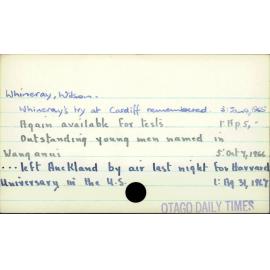 Whineray, Wilson.
Whineray's try at Cardiff remembered. 3: Jan 2, 1965
Again available for tests 1: Ap 5, -
Outstanding young men named in
Wanganui 5: Oct 7, 1966
... left Auckland by air last night for Harvard
University in the U.S. 1: Ag 31, 1967
OTAGO DAILY TIMES